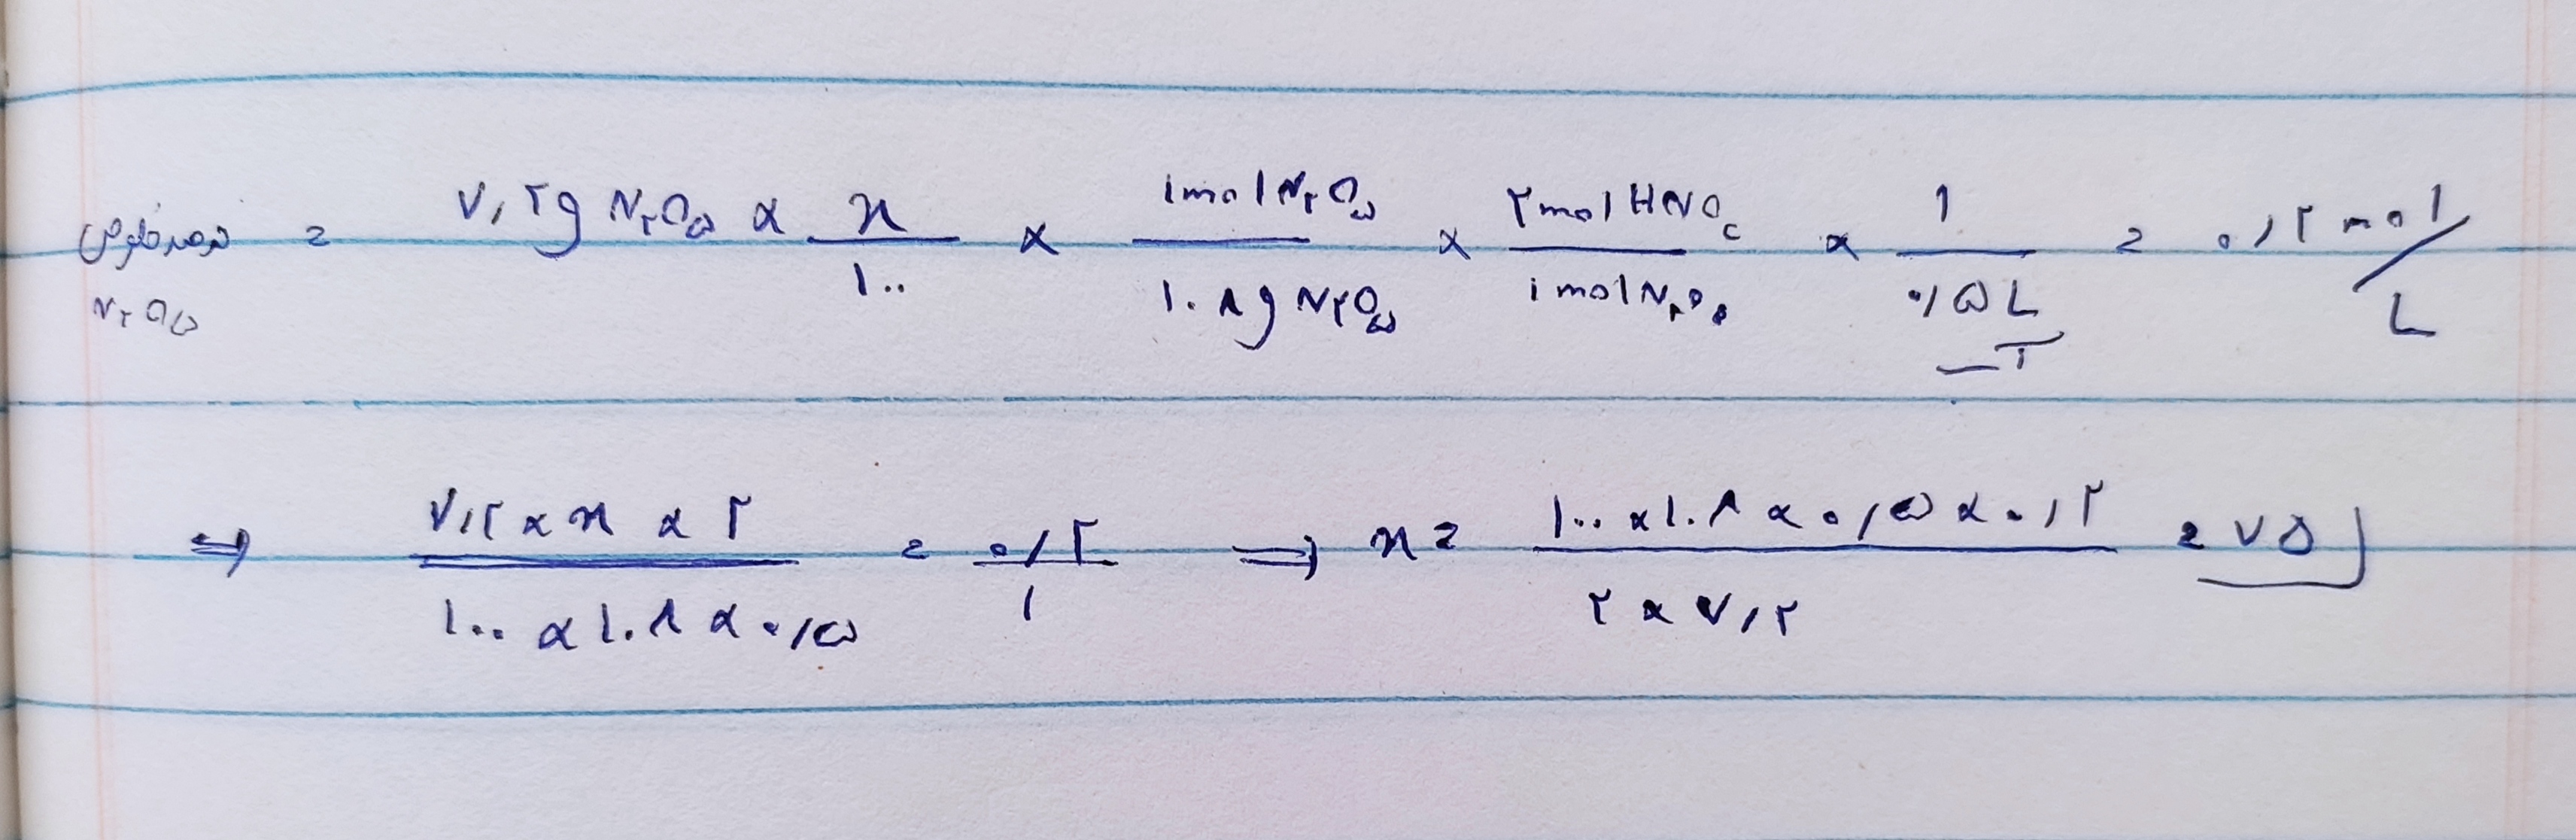 درصد خلوص N۲O۵ = ۷,۲g N۲O۵ × x/۱۰۰ × ۱mol N۲O۵/۱۰۸g N۲O۵ × ۲mol HNO۳/۱mol N۲O۵ × ۱/۰,۵ L = ۰,۲ mol/L
⇒ ۷,۲ × x × ۲/۱۰۰ × ۱۰۸ × ۰,۵ = ۰,۲/۱ ⇒ x = ۱۰۰ × ۱۰۸ × ۰,۵ × ۰,۲/۲ × ۷,۲ = ۷۵